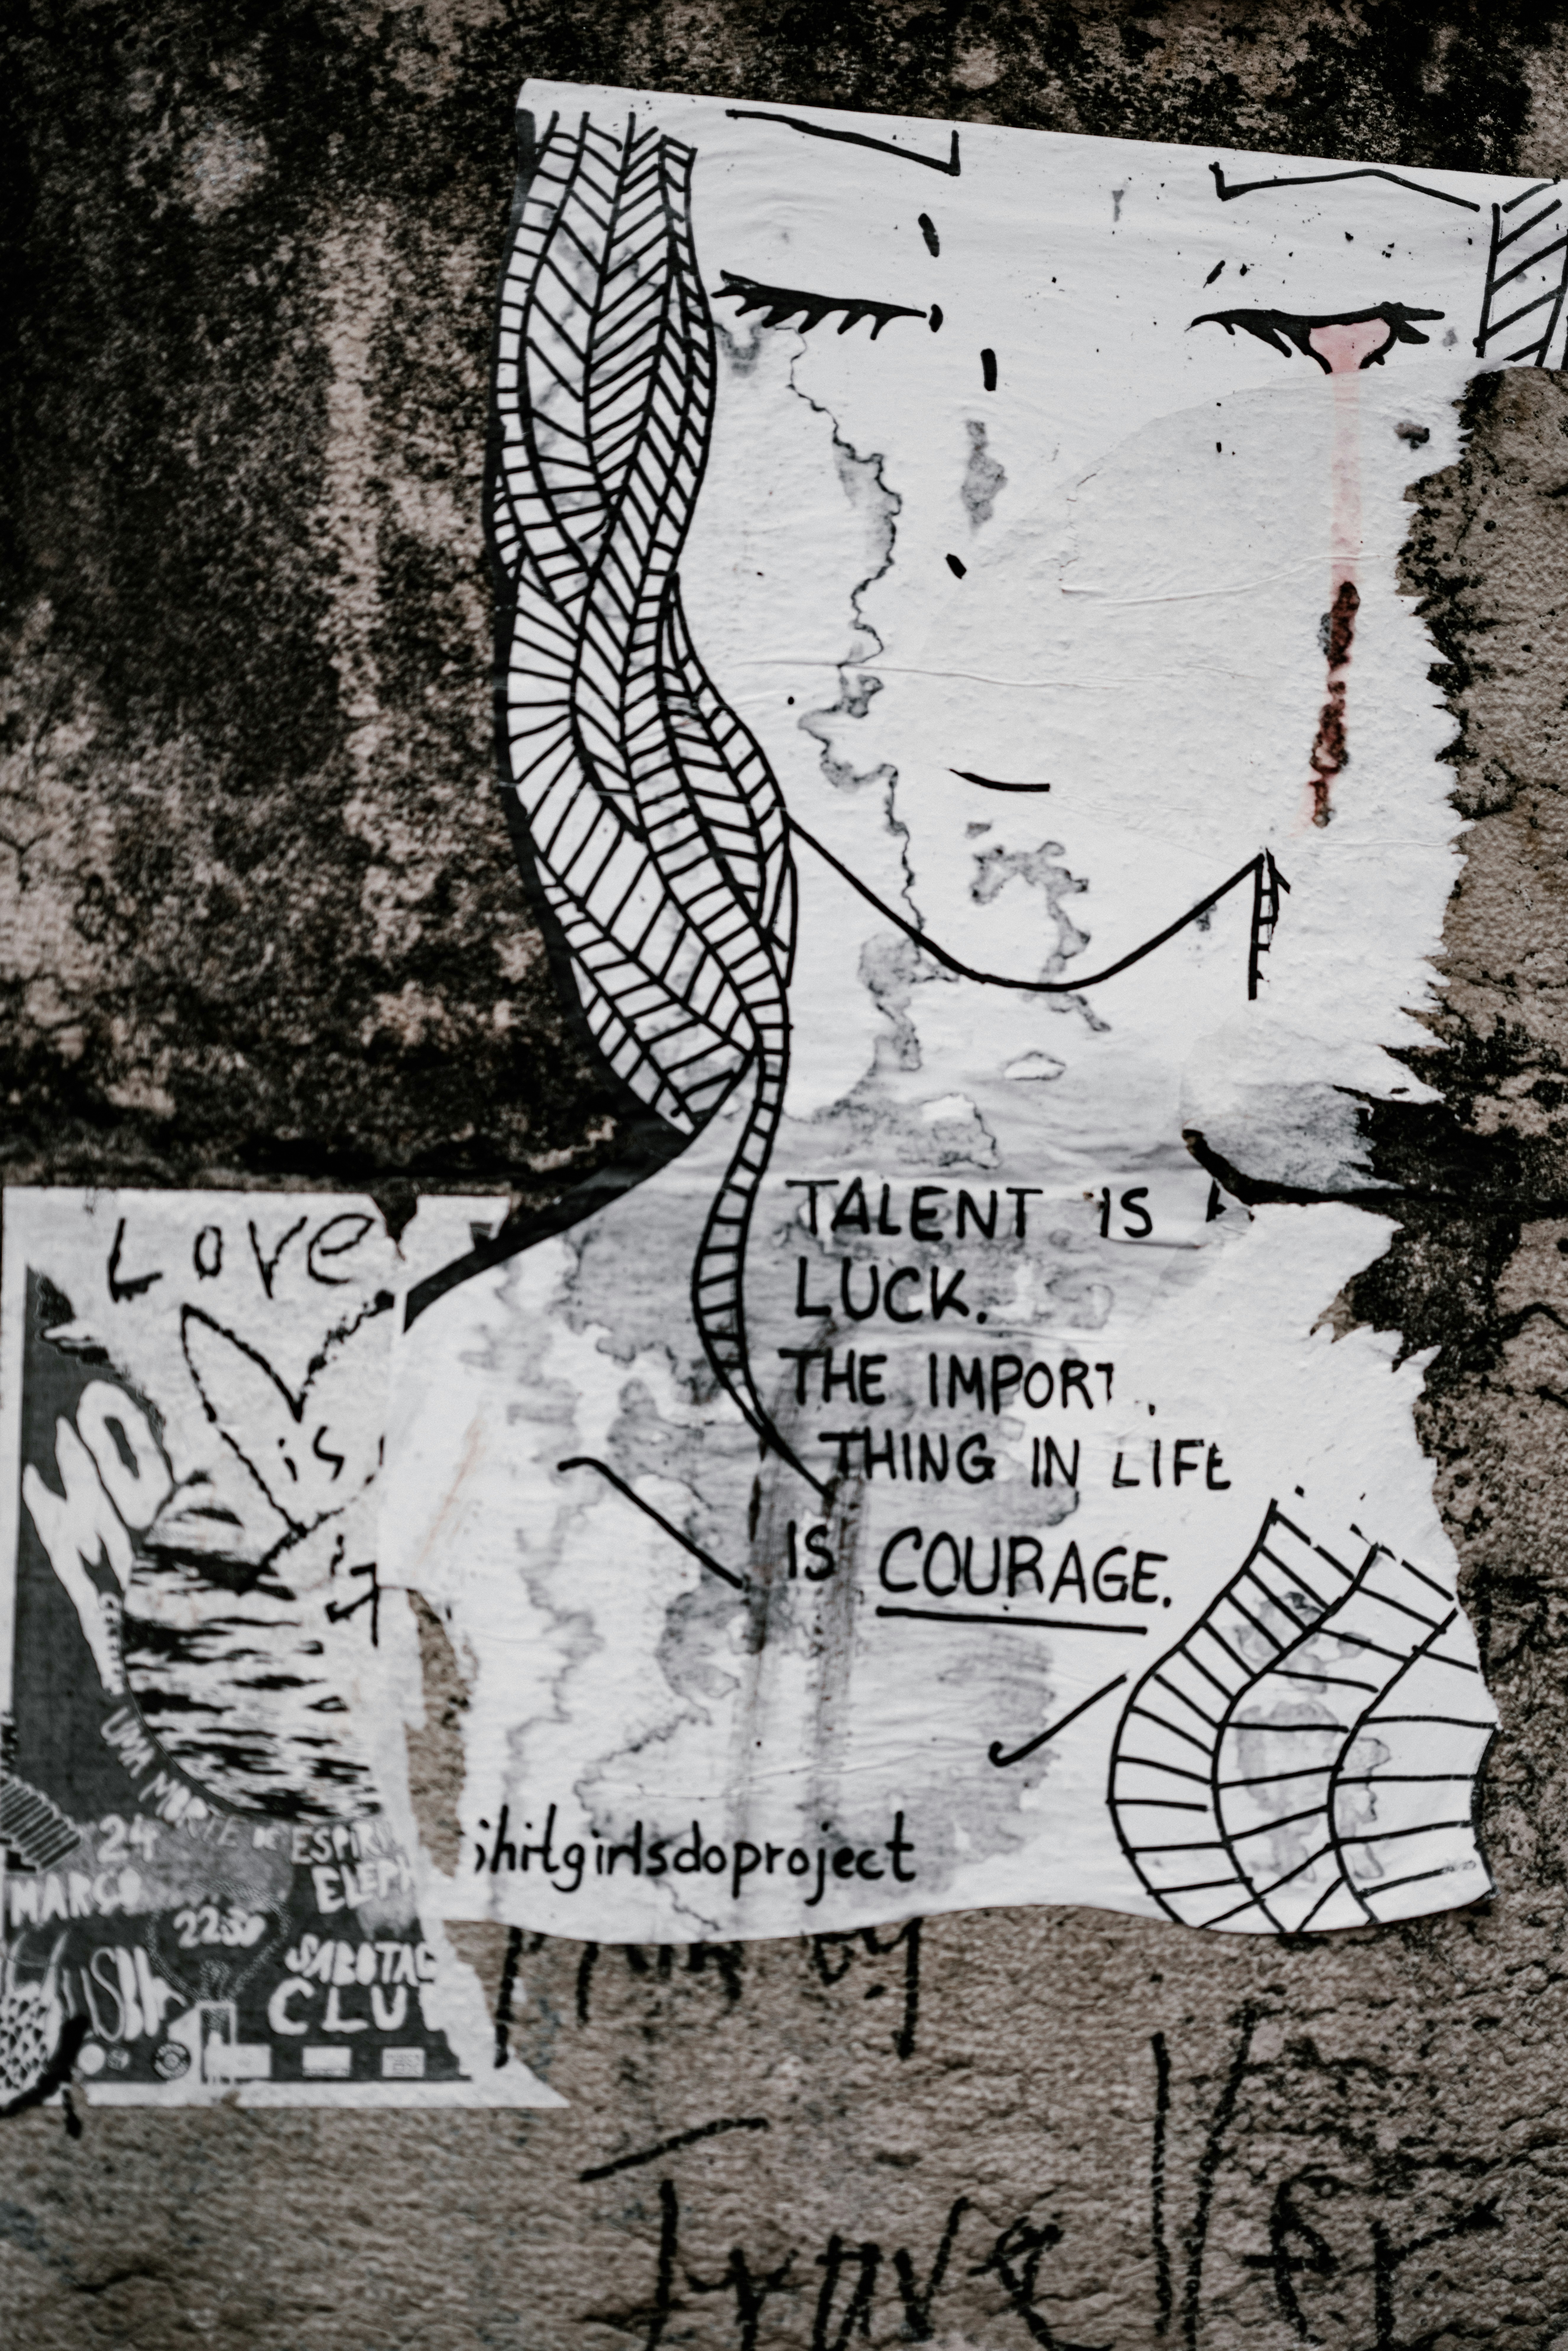 TALENT IS
LUCK.
THE IMPORT
THING IN LIFE
IS COURAGE.
ihitgirlsdoproject
Love
is
it
UMA MORTE DE ESPIRI
ELEPH
24
MARÇO
22:30
SABOTAG
CLU